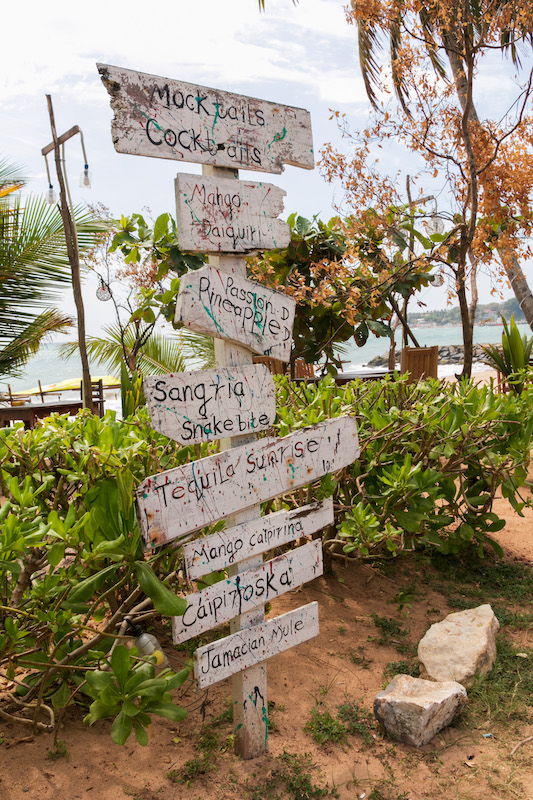 Mocktails
Cocktails
Mango
Daiquiri
Passion D
Pineapple
Sangria
Snakebite
Tequila Sunrise
Mango caipirina
Caipiroska
Jamacian Mule